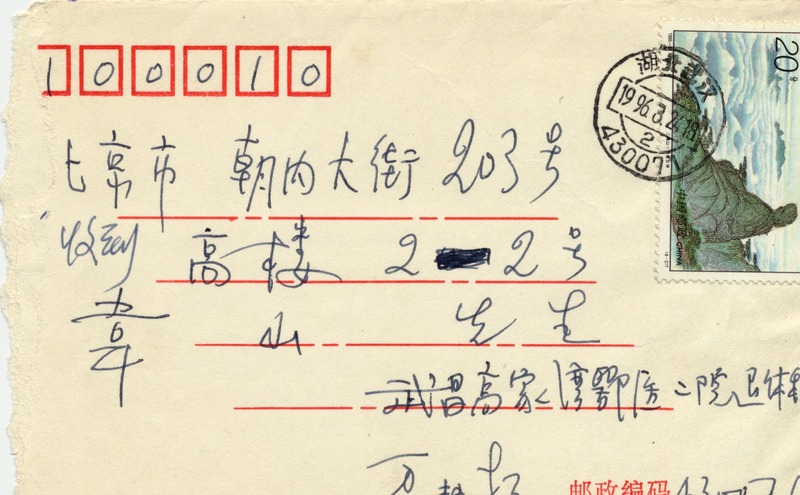 100010
北京市 朝内大街 203号
收到
高楼 2 2号
韦 山 先生
武昌高家湾鄂医二院退休
万
邮政编码 43007
湖北武汉
1996.3.2
2
430071
20分
中国邮政 CHINA